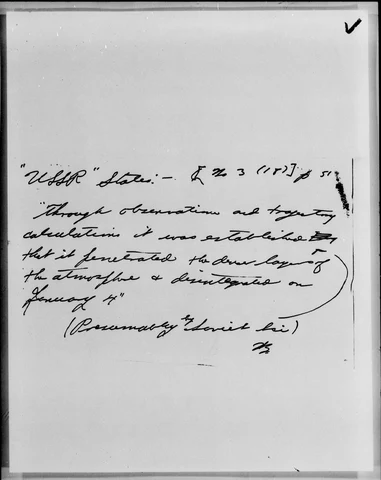 "USSR" States: - [No 3 (18)] p 51
"Through observations and trajectory
calculations it was established
that it penetrated the dense layers of
the atmosphere & disintegrated on
January 4"
(Presumably Soviet